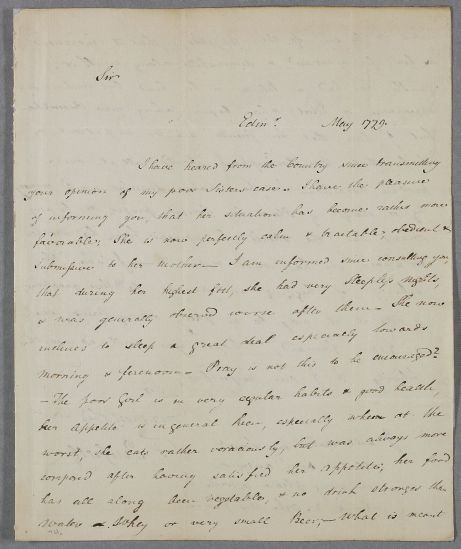 Sir
Edinr. May 1779.
I have heared from the Country since transmitting
your opinion of my poor Sisters case. I have the pleasure
of informing you, that her situation has become rather more
favorable; She is now perfectly calm & tractable, obedient &
submissive to her Mother— I am informed since consulting you,
that during her highest fits, she had very sleepless nights,
& was generally observed worse after them— She now
inclines to sleep a great deal especially towards
morning & forenoon— Pray is not this to be encouraged?
— The poor Girl is in very regular habits & good health,
her appetite is in general keen, especially when at the
worst, she eats rather voraciously, but was always more
composed after having satisfied her appetite, her food
has all along been vegetables, & no drink stronger than
Water & Whey or very small Beer;— What is meant